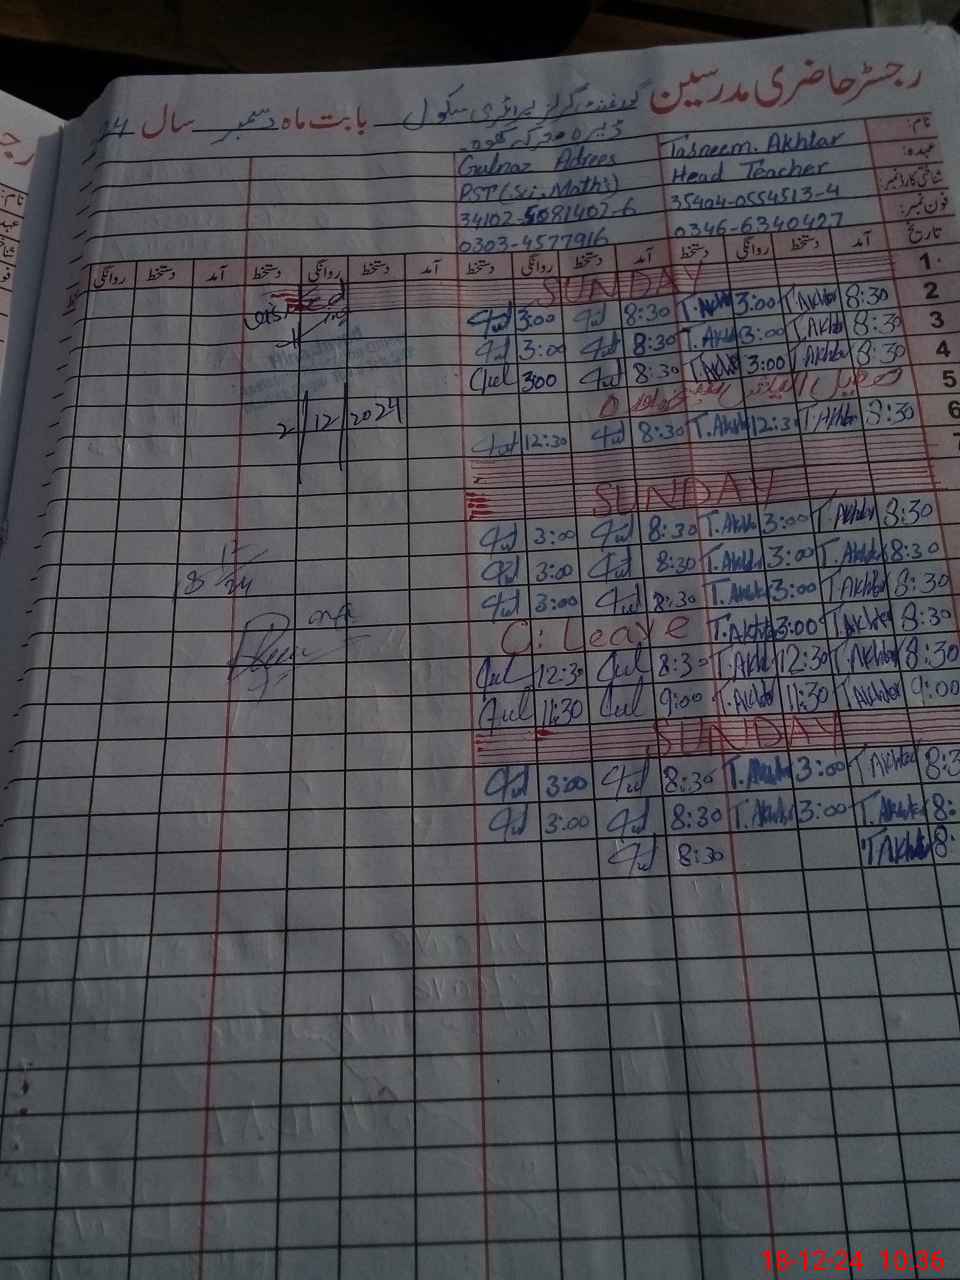 رجسٹر حاضری مدرسین گورنمنٹ گرلز پرائمری سکول بابت ماہ دسمبر سال 24
نام: Tasneem. Akhtar Gulnaz Adrees
عہدہ: Head Teacher PST (Sci. Math)
شناختی کارڈ نمبر: 35404-0554513-4 34102-5081402-6
فون نمبر: 0346-6340427 0303-4577916
تاریخ آمد دستخط روانگی دستخط آمد دستخط روانگی دستخط آمد دستخط روانگی دستخط آمد دستخط روانگی
1 SUNDAY
2 8:30 T.Akhtar 3:00 T.Akhtar 8:30 Gul 3:00 Gul
3 8:30 T.Akhtar 3:00 T.Akhtar 8:30 Gul 3:00 Gul
4 8:30 T.Akhtar 3:00 T.Akhtar 8:30 Gul 3:00 Gul
5
6 8:30 T.Akhtar 12:30 T.Akhtar 8:30 Gul 12:30 Gul
2/12/2024
7
SUNDAY
8:30 T.Akhtar 3:00 T.Akhtar 8:30 Gul 3:00 Gul
8:30 T.Akhtar 3:00 T.Akhtar 8:30 Gul 3:00 Gul
8:30 T.Akhtar 3:00 T.Akhtar 8:30 Gul 3:00 Gul
8:30 T.Akhtar 3:00 T.Akhtar C: Leave
8:30 T.Akhtar 12:30 T.Akhtar 8:30 Gul 12:30 Gul
9:00 T.Akhtar 11:30 T.Akhtar 9:00 Gul 11:30 Gul
SUNDAY
8:3 T.Akhtar 3:00 T.Akhtar 8:30 Gul 3:00 Gul
8: T.Akhtar 3:00 T.Akhtar 8:30 Gul 3:00 Gul
8: T.Akhtar 8:30 Gul
18-12-24 10:36